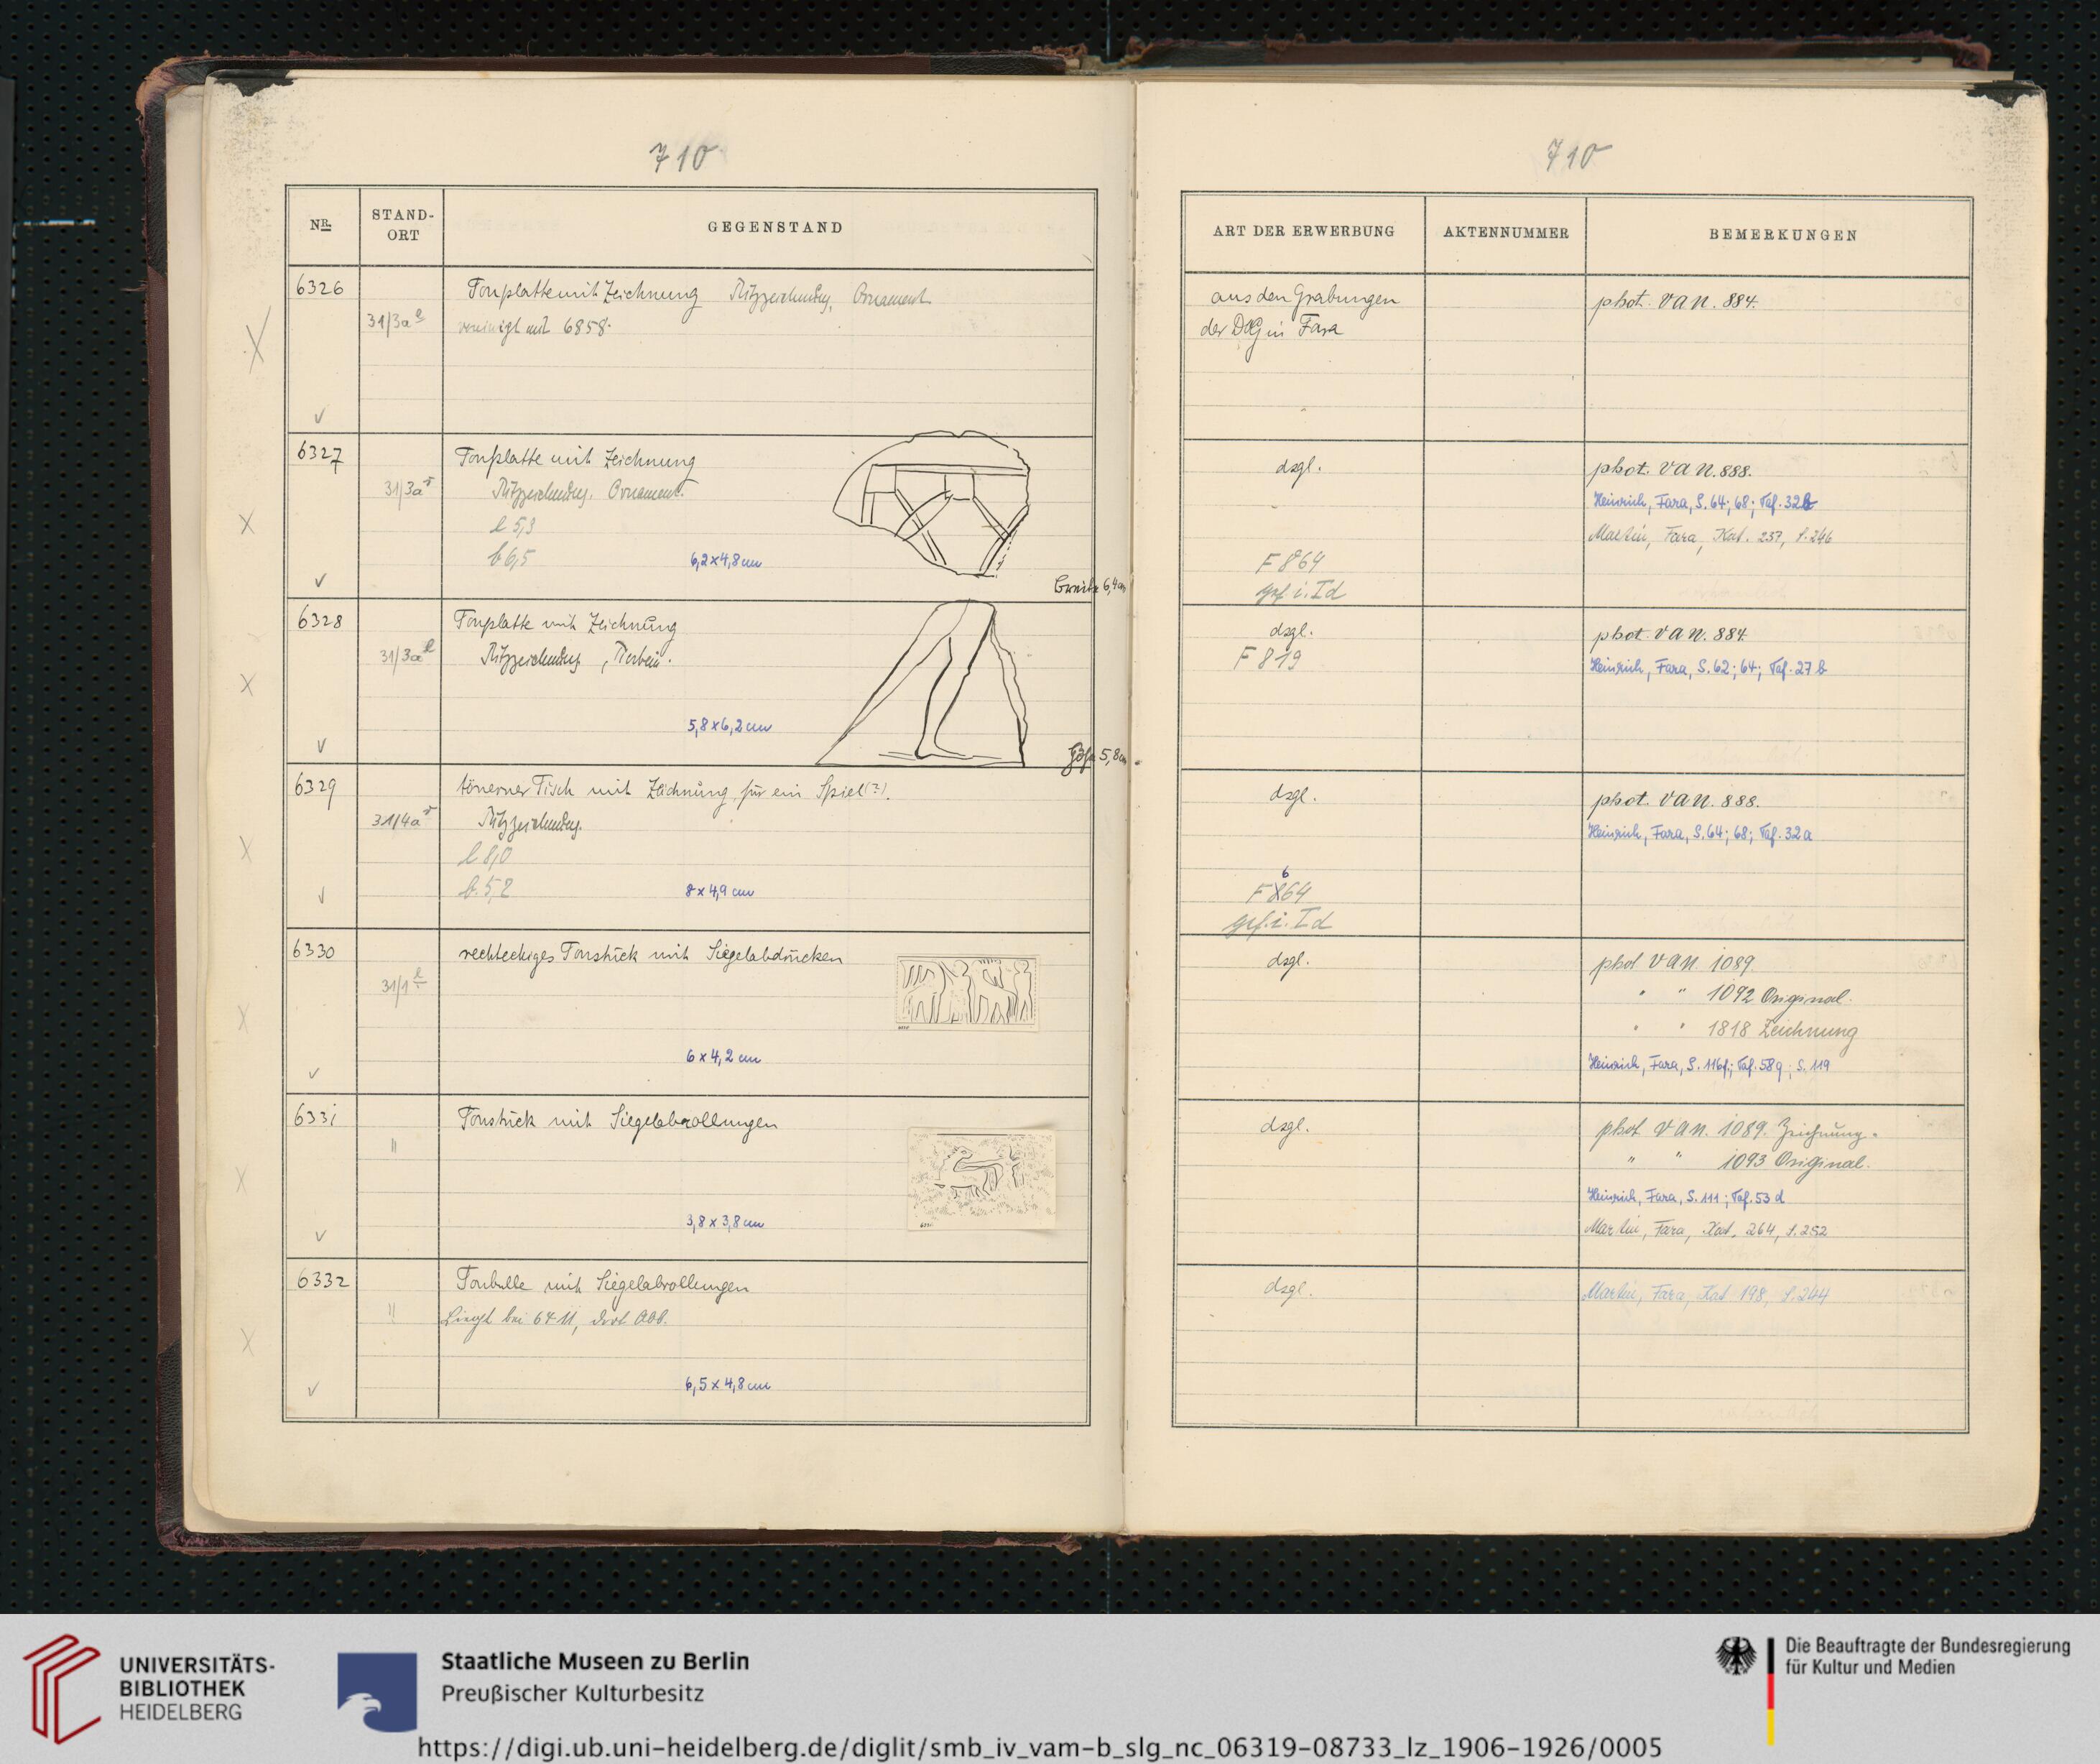 710
NR.
STAND-
ORT
GEGENSTAND
6326
31/3a l
Tonplatte mit Zeichnung Ritzzeichnung, Ornament
vereinigt mit 6858.
6327
31/3a r
Tonplatte mit Zeichnung
Ritzzeichnung. Ornament.
l 5,3
b 6,5
6,2 x 4,8 cm
Breite 6,4 cm
6328
31/3a l
Tonplatte mit Zeichnung
Ritzzeichnung, Tierbein.
5,8 x 6,2 cm
Höhe 5,8 cm
6329
31/4a r
tönerner Tisch mit Zeichnung für ein Spiel (?).
Ritzzeichnung.
l 8,0
b. 5,2
8 x 4,9 cm
6330
31/1 l
rechteckiges Tonstück mit Siegelabdrücken
6 x 4,2 cm
6331
"
Tonstück mit Siegelabrollungen
3,8 x 3,8 cm
6332
"
Tonbulle mit Siegelabrollungen
Liegt bei 6411, dort Abb.
6,5 x 4,8 cm
710
ART DER ERWERBUNG
AKTENNUMMER
BEMERKUNGEN
aus den Grabungen
der DOG in Fara
phot. VAN. 884.
dsgl.
F 864
gef. i. Id
phot. VAN. 888.
Heinrich, Fara, S. 64; 68; Taf. 32b
Martin, Fara, Kat. 237, S. 246
dsgl.
F 819
phot. VAN. 884
Heinrich, Fara, S. 62; 64; Taf. 27 b
dsgl.
6
F 864
gef. i. Id
phot. VAN. 888.
Heinrich, Fara, S. 64; 68; Taf. 32 a
dsgl.
phot VAN. 1089.
" " 1092 Original.
" " 1818 Zeichnung
Heinrich, Fara, S. 116f.; Taf. 58q; S. 119
dsgl.
phot VAN. 1089. Zeichnung.
" " 1093 Original.
Heinrich, Fara, S. 111; Taf. 53 d
Martin, Fara, Kat. 264, S. 252
dsgl.
Martin, Fara, Kat 198, S. 244
UNIVERSITÄTS-
BIBLIOTHEK
HEIDELBERG
Staatliche Museen zu Berlin
Preußischer Kulturbesitz
Die Beauftragte der Bundesregierung
für Kultur und Medien
https://digi.ub.uni-heidelberg.de/diglit/smb_iv_vam-b_slg_nc_06319-08733_lz_1906-1926/0005